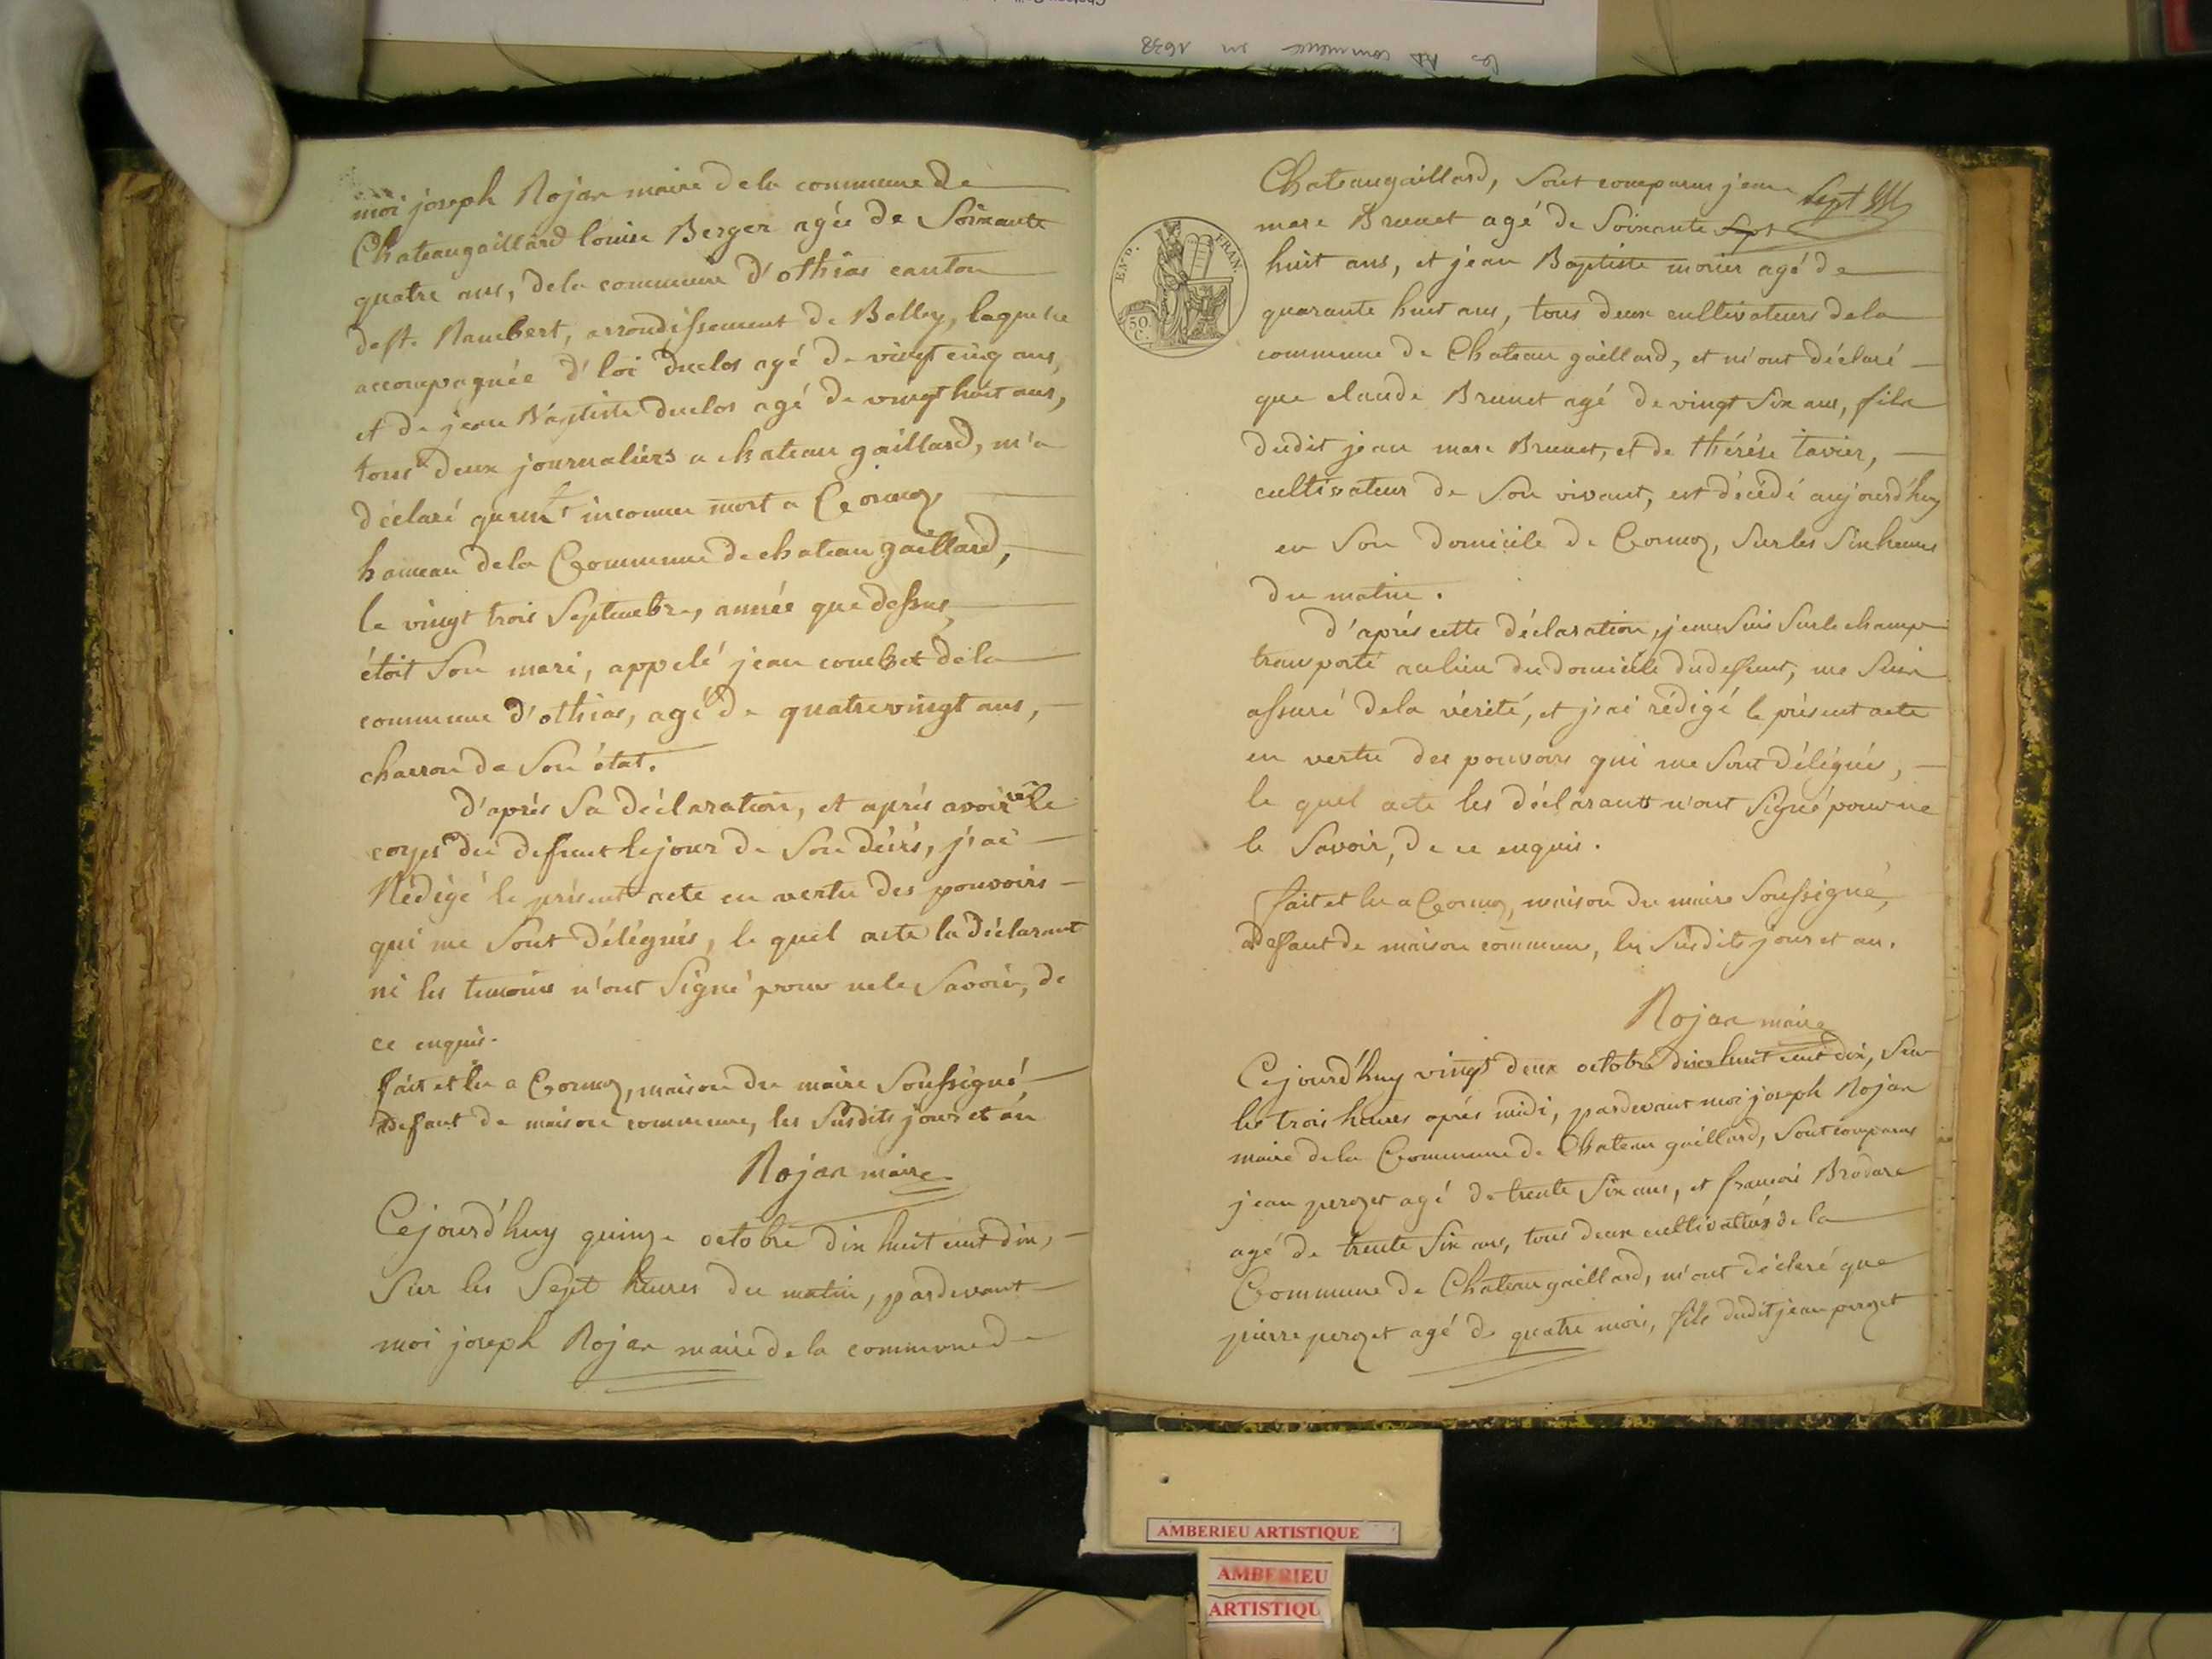 moi joseph Rojan maire de la commune de
Chateaugaillard louise Berger agée de Soixante
quatre ans, de la commune d'othias canton
de st. Rambert, arrondissement de Belley, laquelle
accompagnée d'loi duclos agé de vingt cinq ans,
et de jean Baptiste duclos agé de vingt huit ans,
tous deux journaliérs a chateau gaillard, m'a
déclaré qu'un inconnu mort a Cormoz
hameau de la Commune de chateau gaillard,
le vingt trois Septembre, année que dessus,
étoit Son mari, appelé jean combet de la
commune d'othias, agé de quatrevingt ans,
charron de Son état.
d'aprés Sa déclaration, et aprés avoir vu le
corps du defunt le jour de Son décés, j'ai
Rédigé le présent acte en vertu des pouvoirs
qui me Sont délégués, le quel acte la déclarant
ni les temoins n'ont Signé pour ne le Savoir, de
ce enquis.
fait et lu a Cormoz, maison du maire Soussigné,
a defaut de maison commune, les Susdits jour et an
Rojan maire
Cejourd'huy quinze octobre dix huit cent dix,
Sur les Sept heures du matin, pardevant
moi joseph Rojan maire de la commune de
Chateaugaillard, Sont comparus jean
Sept
marc Brunet agé de Soixante Sept
huit ans, et jean Baptiste morier agé de
quarante huit ans, tous deux cultivateurs de la
commune de Chateau gaillard, et m'ont déclaré
que claude Brunet agé de vingt Six ans, fils
dudit jean marc Brunet, et de thérése tavier,
cultivateur de Son vivant, est décédé aujourd'huy
en Son domicile de Cormoz, Sur les Six heures
du matin.
d'aprés cette déclaration, je me Suis Sur le champ
transporté au lieu du domicile du defunt, me Suis
assuré de la vérité, et j'ai rédigé le présent acte
en vertu des pouvoirs qui me Sont délégués,
le quel acte les déclarants n'ont Signé pour ne
le Savoir, de ce enquis.
fait et lu a Cormoz, maison du maire Soussigné,
a defaut de maison commune, les Susdits jour et an.
Rojan maire
Cejourd'huy vingt deux octobre dix huit cent dix, Sur
les trois heures aprés midi, pardevant moi joseph Rojan
maire de la Commune de Chateau gaillard, Sont comparus
jean perozet agé de trente Six ans, et francois Brodare
agé de trente Six ans, tous deux cultivateurs de la
Commune de Chateau gaillard, m'ont déclaré que
pierre perozet agé de quatre mois, fils dudit jean perozet
END.
FRAN.
50
C.
les AD commence en 1638
AMBERIEU ARTISTIQUE
AMBERIEU
ARTISTIQU